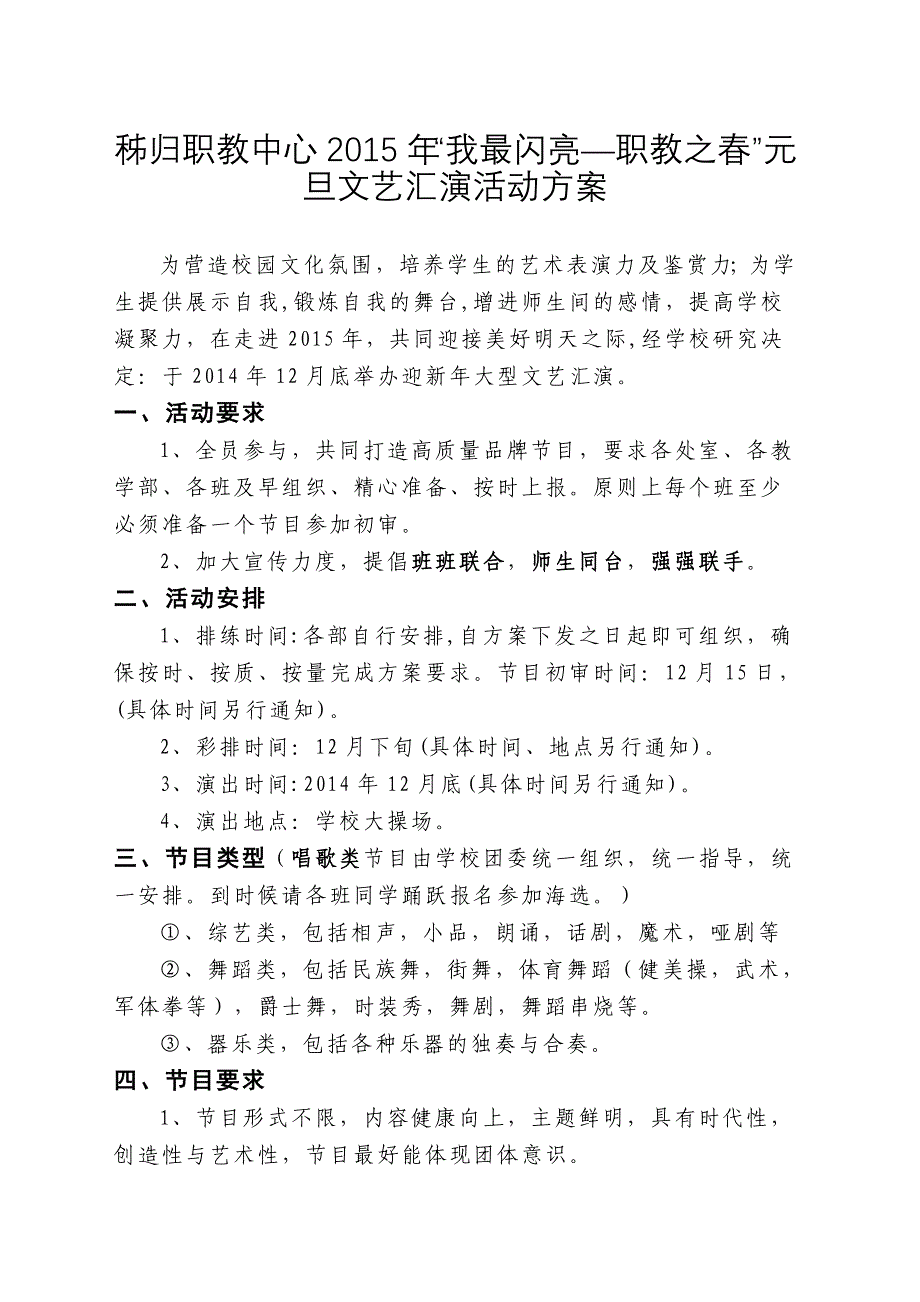 秭归职教中心 2015 年“我最闪亮—职教之春”元
旦文艺汇演活动方案
为营造校园文化氛围，培养学生的艺术表演力及鉴赏力; 为学
生提供展示自我,锻炼自我的舞台,增进师生间的感情，提高学校
凝聚力，在走进 2015 年，共同迎接美好明天之际,经学校研究决
定：于 2014 年 12 月底举办迎新年大型文艺汇演。
一、活动要求
1、全员参与，共同打造高质量品牌节目，要求各处室、各教
学部、各班及早组织、精心准备、按时上报。原则上每个班至少
必须准备一个节目参加初审。
2、加大宣传力度，提倡班班联合，师生同台，强强联手。
二、活动安排
1、排练时间:各部自行安排,自方案下发之日起即可组织，确
保按时、按质、按量完成方案要求。节目初审时间：12 月 15 日，
(具体时间另行通知)。
2、彩排时间：12 月下旬(具体时间、地点另行通知)。
3、演出时间:2014 年 12 月底(具体时间另行通知)。
4、演出地点：学校大操场。
三、节目类型（唱歌类节目由学校团委统一组织，统一指导，统
一安排。到时候请各班同学踊跃报名参加海选。）
①、综艺类，包括相声，小品，朗诵，话剧，魔术，哑剧等
②、舞蹈类，包括民族舞，街舞，体育舞蹈（健美操，武术，
军体拳等），爵士舞，时装秀，舞剧，舞蹈串烧等。
③、器乐类，包括各种乐器的独奏与合奏。
四、节目要求
1、节目形式不限，内容健康向上，主题鲜明，具有时代性，
创造性与艺术性，节目最好能体现团体意识。